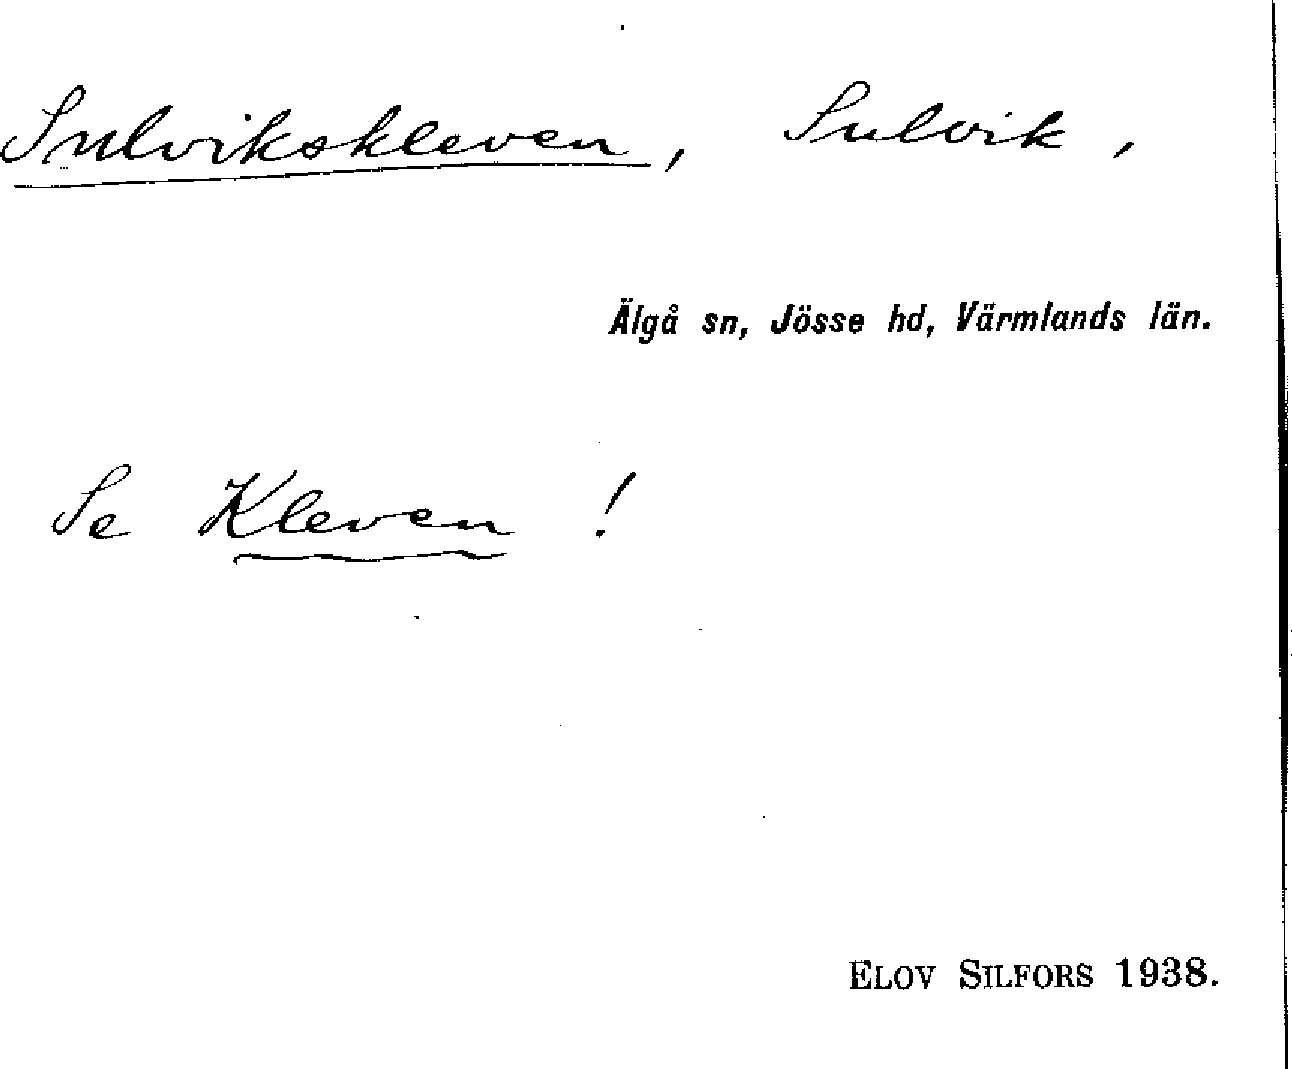 Sulvikskleven, Sulvik,
Älgå sn, Jösse hd, Värmlands län.
Se Kleven !
ELOV SILFORS 1938.